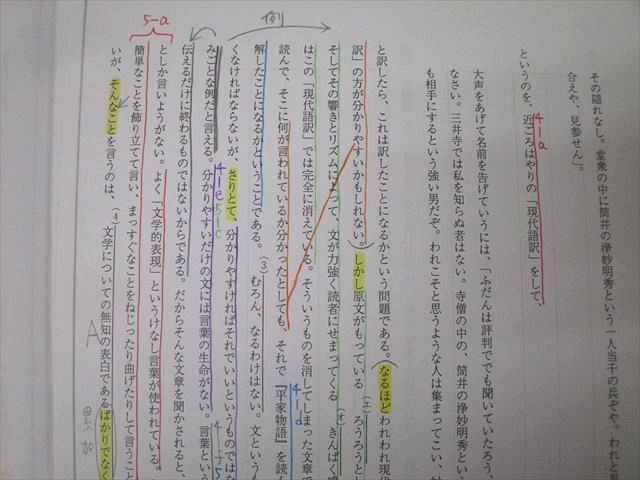 その隠れなし。堂衆の中に筒井の浄妙明秀という一人当千の兵ぞや。われと
合えや、見参せん」。
というのを、近ごろはやりの「現代語訳」をして、
4-1a
大声をあげて名前を告げていうには、「ふだんは評判ででも聞いていたろう、
なさい。三井寺では私を知らぬ者はない。寺僧の中の、筒井の浄妙明秀とい
も相手にするという強い男だぞ。われこそと思うような人は集まってこい、
と訳したら、これは訳したことになるかという問題である。なるほどわれわれ現代
訳」の方が分かりやすいかもしれない。しかし原文がもっている(エ)ろうろうと
そしてその響きとリズムによって、文が力強く読者にせまってくる(オ)きんぱく
はこの「現代語訳」では完全に消えている。そういうものを消してしまった文章で
例
読んで、そこに何が言われているか分かったとしても、それで『平家物語』を読ん
4-1d
解したことになるかということである。(3)むろん、なるわけはない。文というも
くなければならないが、さりとて、分かりやすければそれでいいというものではな
みごとな例だと言える。分かりやすいだけの文には言葉の生命がない。言葉とい
4-1e
5-1c
伝えるだけに終わるものではないからである。だからそんな文章を聞かされると、
としか言いようがない。よく「文学的表現」というけなし言葉が使われている。
5-a
簡単なことを飾り立てて言い、まっすぐなことをねじったり曲げたりして言うこと
いが、そんなことを言うのは、(4)文学についての無知の表白であるばかりでなく
A
累加